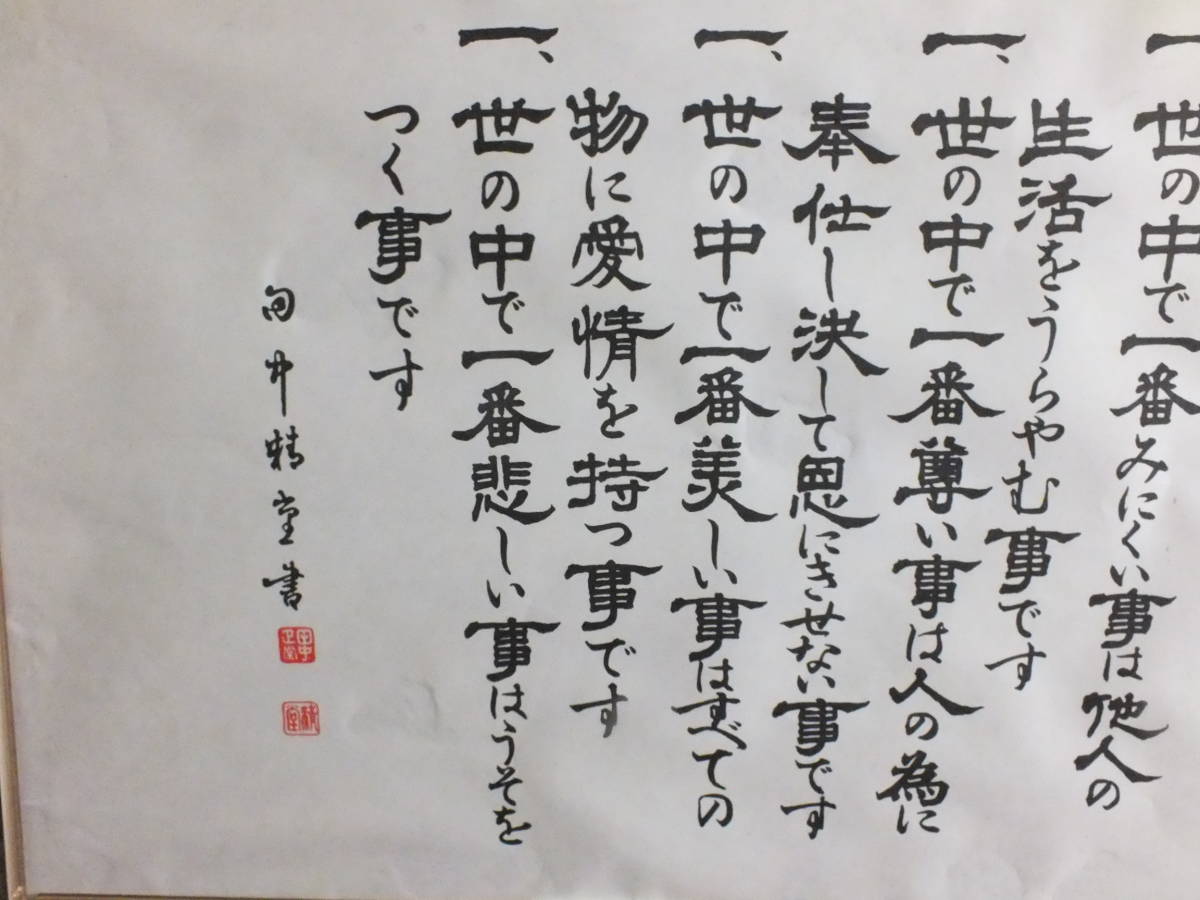 一、世の中で一番みにくい事は他人の
生活をうらやむ事です
一、世の中で一番尊い事は人の為に
奉仕し決して恩にきせない事です
一、世の中で一番美しい事はすべての
物に愛情を持つ事です
一、世の中で一番悲しい事はうそを
つく事です
田中精堂書